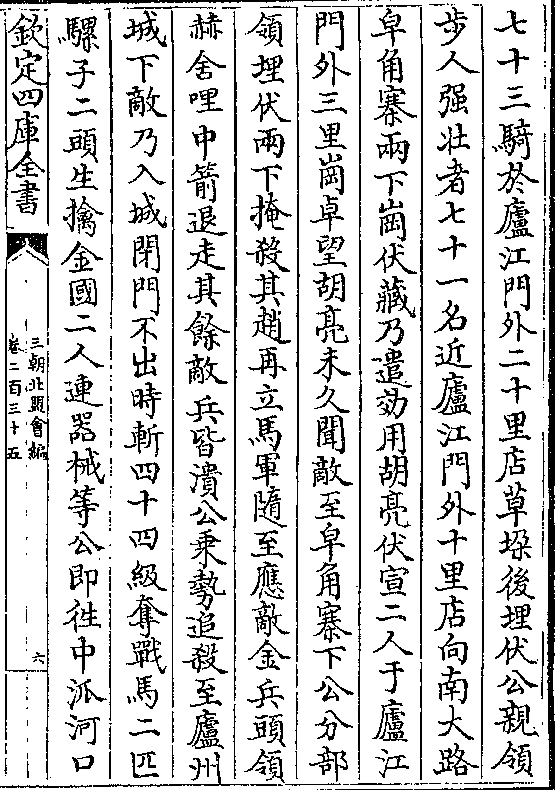 七十三騎於廬江門外二十里店草垜後埋伏公親領
步人强壯者七十一名近廬江門外十里店向南大路
皁角寨兩下崗伏藏乃遣効用胡亮伏宣二人于廬江
門外三里崗卓望胡亮未久聞敵至皁角寨下公分部
領埋伏兩下掩殺其趙再立馬軍隨至應敵金兵頭領
赫舍哩中箭退走其餘敵兵皆潰公乘勢追殺至廬州
城下敵乃入城閉門不出時斬四十四級奪戰馬二匹
騾子二頭生擒金國二人連器械等公即徃中派河口
欽定四庫全書
三朝北盟會編
卷二百三十五
六